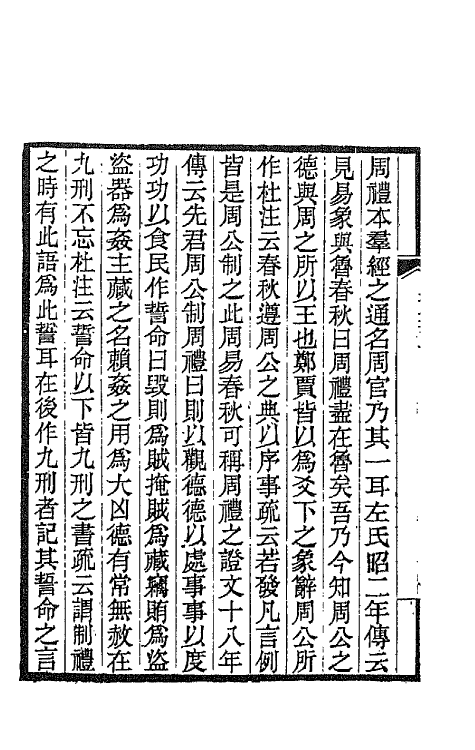 周禮本羣經之通名周官乃其一耳左氏昭二年傳云
見易象與魯春秋曰周禮盡在魯矣吾乃今知周公之
德與周之所以王也鄭賈皆以爲爻下之象辭周公所
作杜注云春秋遵周公之典以序事疏云若發凡言例
皆是周公制之此周易春秋可稱周禮之證文十八年
傳云先君周公制周禮曰則以觀德德以處事事以度
功功以食民作誓命曰毀則爲賊掩賊爲藏竊賄爲盜
盜器爲姦主藏之名賴姦之用爲大凶德有常無赦在
九刑不忘杜注云誓命以下皆九刑之書疏云謂制禮
之時有此語爲此誓耳在後作九刑者記其誓命之言